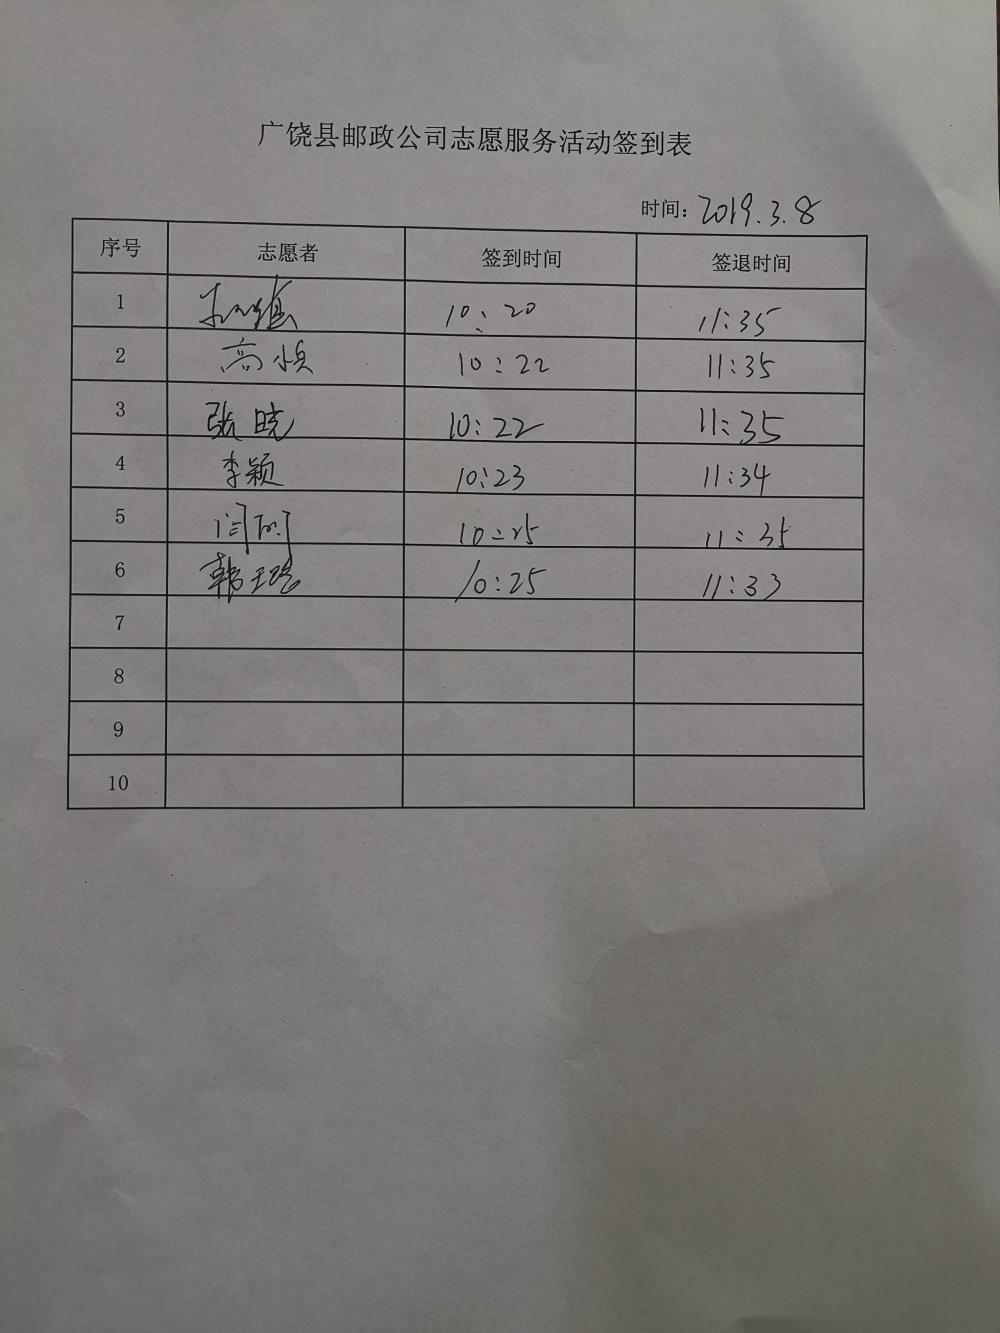 广饶县邮政公司志愿服务活动签到表
时间: 2019.3.8
序号 志愿者 签到时间 签退时间
1 10:20 11:35
2 高 10:22 11:35
3 张晓 10:22 11:35
4 李颖 10:23 11:34
5 闫 10:25 11:35
6 韩 10:25 11:33
7
8
9
10